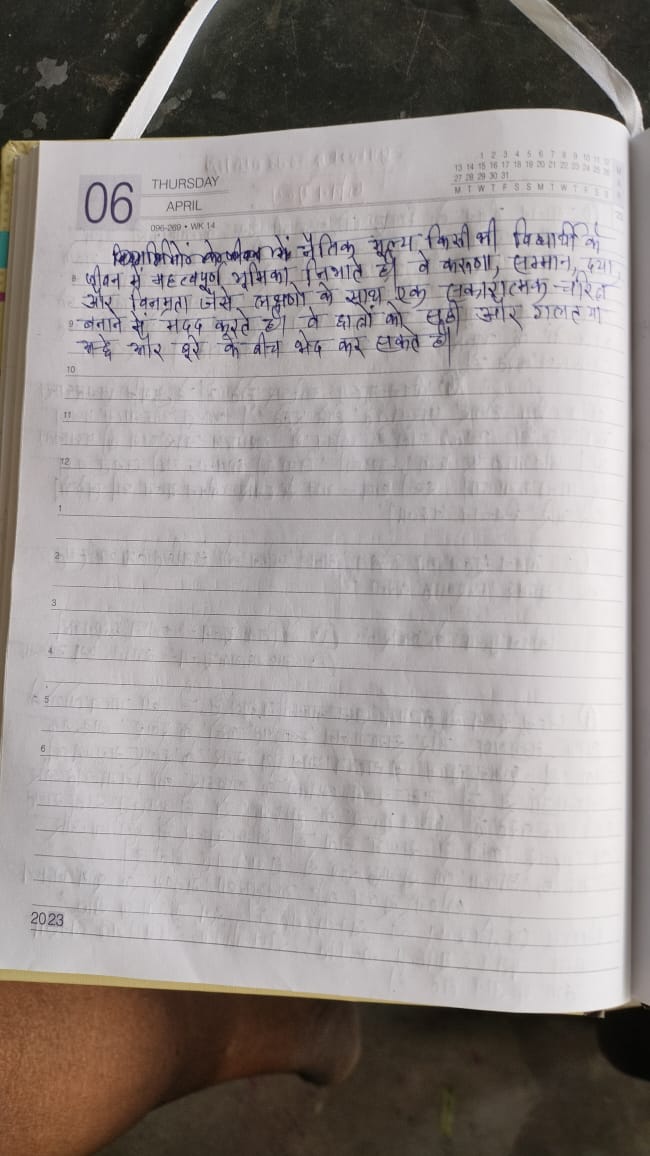 06 THURSDAY
APRIL
096-269 • WK 14
1 2 3 4 5 6 7 8 9 10 11 12
13 14 15 16 17 18 19 20 21 22 23 24 25 26
27 28 29 30 31
M T W T F S S M T W T F S S
नैतिक मूल्य किसी भी विद्यार्थी के
8 जीवन में महत्वपूर्ण भूमिका निभाते है। वे करुणा, सम्मान, दया,
और विनम्रता जैसे लक्षणो के साथ एक सकारात्मक चरित्र
9 बनाने में मदद करते है। वे छात्रों को सही और गलत या
अच्छे और बुरे के बीच भेद कर सकते है।
10
11
12
1
2
3
4
5
6
2023